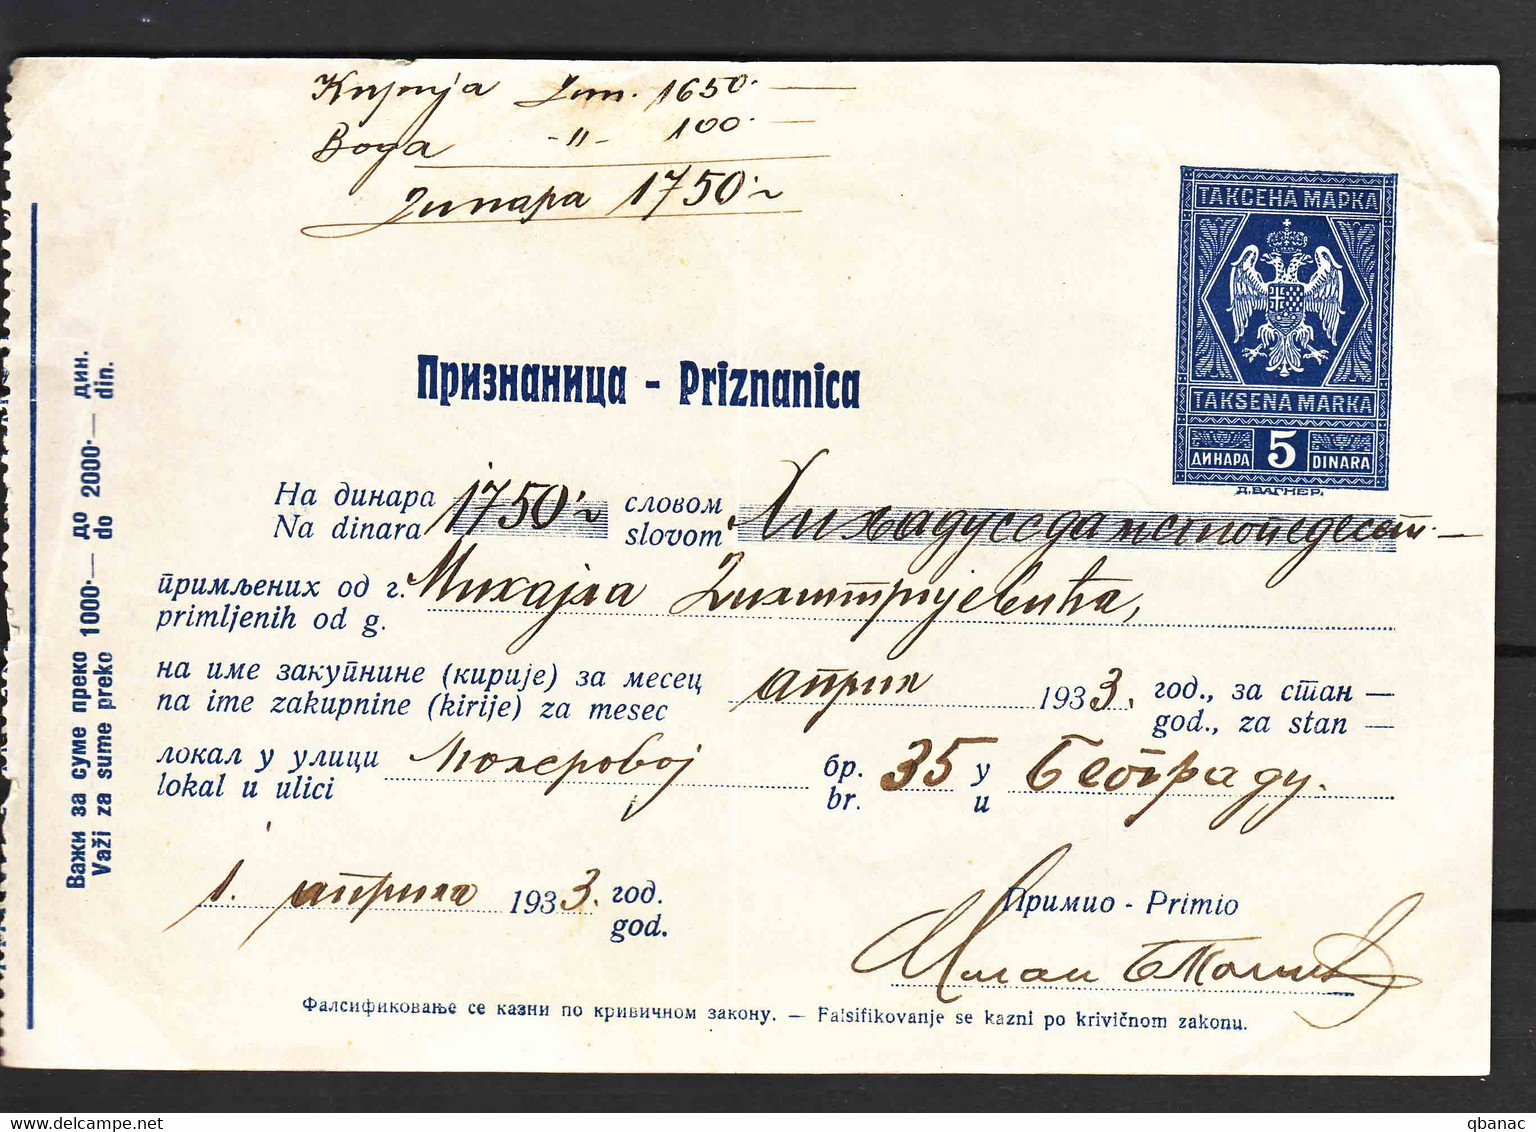 Кирија Дин. 1650.—
Вода -"- 100.—
Динара 1750.
ТАКСЕНА МАРКА
TAKSENA MARKA
ДИНАРА 5 DINARA
Д. ВАГНЕР.
Признаница - Priznanica
На динара 1750. словом Хиљадуседамстопедесет.—
Na dinara slovom
примљених од г. Михајла Димитријевића,
primljenih od g.
на име закупнине (кирије) за месец април 1933. год., за стан —
na ime zakupnine (kirije) za mesec god., za stan —
локал у улици Молеровој бр. 35 у Београду.
lokal u ulici br. u
1. априла 1933. год.
god.
Примио - Primio
Милан
Фалсификовање се казни по кривичном закону. — Falsifikovanje se kazni po krivičnom zakonu.
Важи за суме преко 1000.— до 2000.— дин.
Važi za sume preko do din.
qbanac